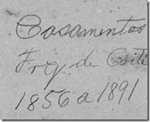 Casamentos
Frg. de Coité
1856 a 1891